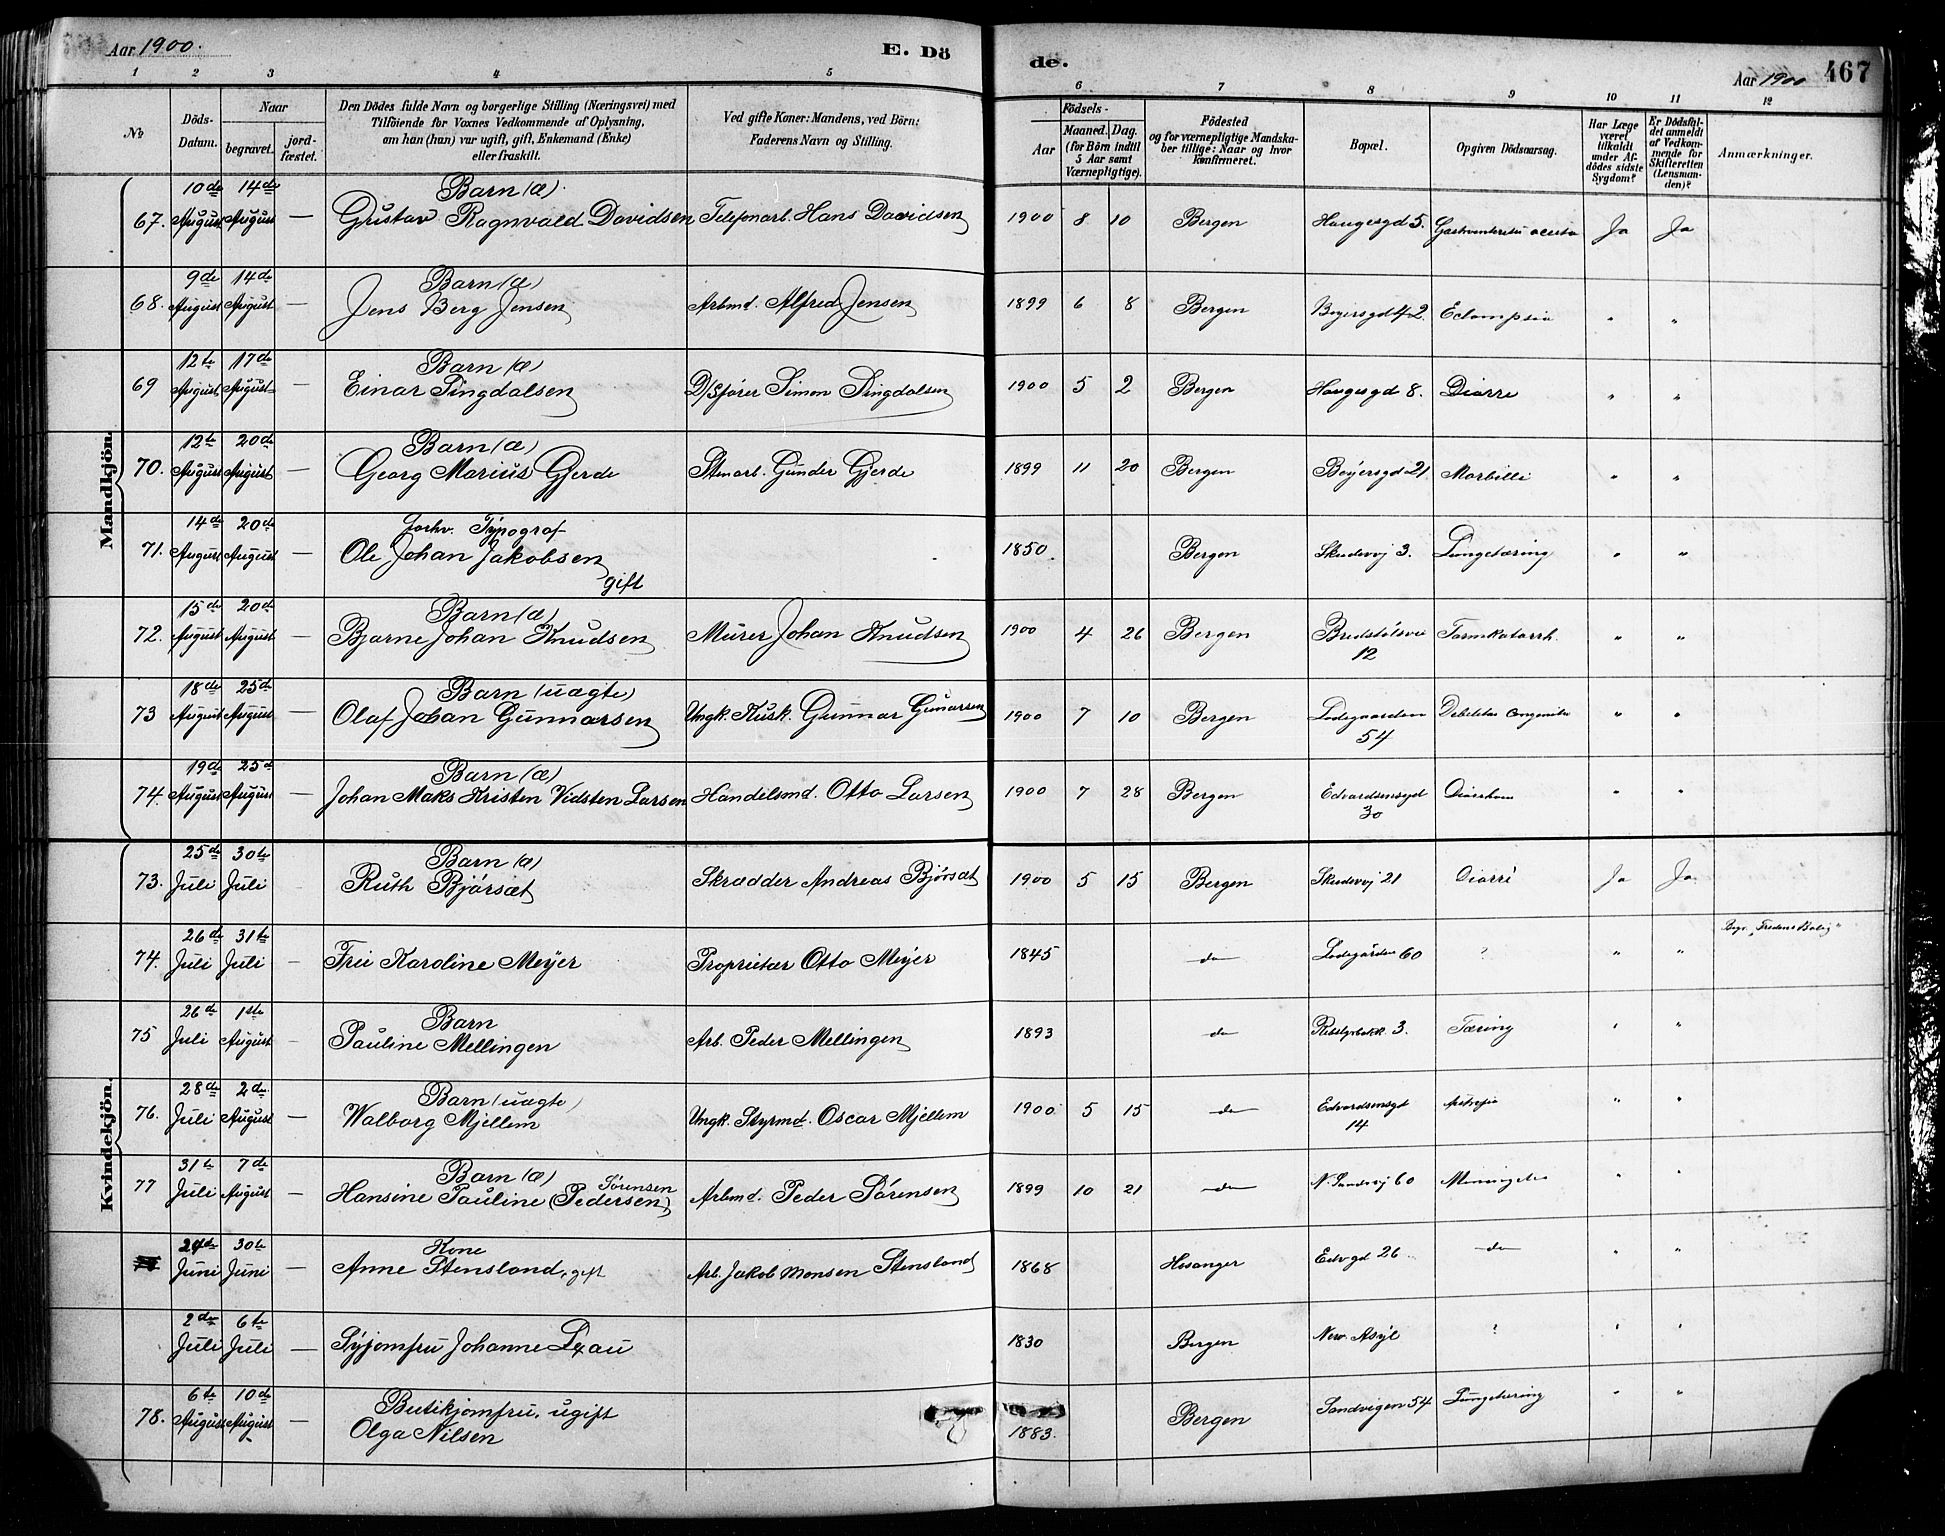 Aar 1900.
E. Dö
de.
Aar 1900
467
1 2 3 4 5 6 7 8 9 10 11 12
No
Döds-Datum.
Naar
begravet.
jord-fæstet.
Den Dödes fulde Navn og borgerlige Stilling (Næringsvei) med
Tilföiende for Voxnes Vedkommende af Oplysning,
om han (hun) var ugift, gift, Enkemand (Enke)
eller fraskilt.
Ved gifte Koner: Mandens, ved Börn:
Faderens Navn og Stilling.
Födsels-
Aar
Maaned. Dag.
(for Börn indtil
5 Aar samt
Værnepligtige).
Födested
og for værnepligtige Mandska-
ber tillige: Naar og hvor
konfirmeret.
Bopæl.
Opgiven Dödsaarsag.
Har Læge
været
tilkaldt
under Af-
dödes sidste
Sygdom?
Er Dödsfal-
det anmeldt
af Vedkom-
mende for
Skifteretten
(Lensman-
den)?
Anmærkninger.
Mandkjön.
10de 14de Barn (æ).
67. August August — Gustav Ragnvald Davidsen Telefonarb. Hans Davidsen 1900 8 10 Bergen Haugesgd 5. Ja Ja
9de 14de Barn (æ)
68. August August — Jens Berg Jensen Arbmd. Alfred Jensen 1899 6 8 Bergen Beyersgd 42. Eclampsia " "
12te 17de Barn (æ)
69 August August — Einar Singdalsen D/Sfører Simon Singdalsen 1900 5 2 Bergen Haugesgd 8. Diarre " "
12te 20de Barn (æ)
70. August August — Georg Marius Gjerde Stenarb. Gunder Gjerde 1899 11 20 Bergen Beyersgd 21 Morbilli " "
14de 20de forhv. Typograf
71. August August — Ole Johan Jakobsen 1850. Bergen Skudevvj 3. Lungetæring " "
gift
15de 20de Barn (æ)
72. August August — Bjarne Johan Knudsen Murer Johan Knudsen 1900 4 26 Bergen Bredstølsvei Tarmkatarrh. " "
12
18de 25de Barn (uægte)
73 August August — Olaf Johan Gunnarsen Ungk. Kusk. Gunnar Gunarsen 1900 7 10 Bergen Ladegaarden Debilitas Congenita " "
54
19de 25de Barn (æ)
74. August August — Johan Maks Kristen Vidsten Larsen Handelsmd. Otto Larsen 1900 7 28 Bergen Edvardsensgd " "
30
Kvindekjön.
25de 30te Barn (æ)
73. Juli Juli Ruth Bjørsæt Skrædder Andreas Bjørsæt 1900 5 15 Bergen Skudevvj 21 Diarré Ja Ja
26de 31te Begr. „Fredens Bolig"
74. Juli Juli — Fru Karoline Meyer Proprietær Otto Meyer 1845 do Ladegården 60 ? " "
26de 1ste Barn
75 Juli August — Pauline Mellingen Arb. Peder Mellingen 1893 do 3. Tæring " "
28de 2de Barn (uægte)
76. Juli August — Walborg Mjellem Ungk. Styrmd. Oscar Mjellem 1900 5 15 do Edvardsensgd " "
14
31te 7de Barn (æ) Sørensen
77 Juli August — Hansine Pauline (Pedersen) Arbmd. Peder Sørensen 1899 10 21 do N. Sandvvj 60 " "
24de 30te Kone
Juni Juni — Anne Stensland, gift Arb. Jakob Monsen Stensland 1868 Hosanger Edvgd 26 do " "
2de 6te
Juli Juli — Syjomfru Johanne Lexau 1830 Bergen New. Asyl ? " "
6te 10de Butikjomfru, ugift
78. August August — Olga Nilsen 1883. Bergen Sandvigen 54 Lungetæring " "